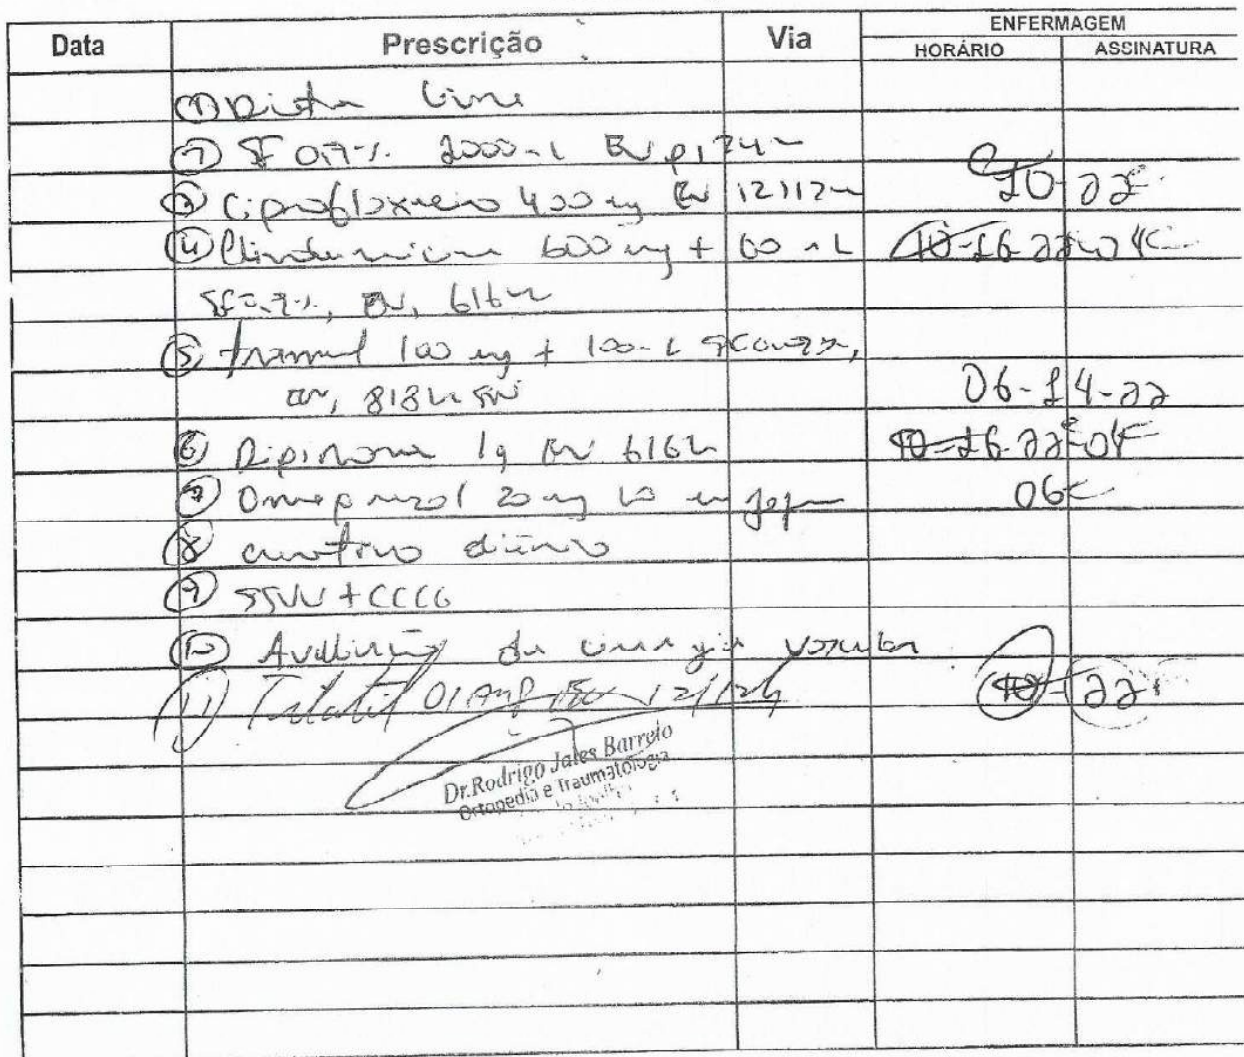 ENFERMAGEM
Data Prescrição Via HORÁRIO ASSINATURA
① Dieta livre
② SF 0,9% 2000mL EV p/ 24h
③ Ciprofloxacino 400mg EV 12/12h 10 22
④ Clindamicina 600mg + 100mL 10-16-22-04
SF 0,9%, EV, 6/6h
⑤ Tramal 100mg + 100mL SF 0,9%,
EV, 8/8h SN 06-14-22
⑥ Dipirona 1g EV 6/6h 10-16-22-04
⑦ Omeprazol 20mg VO em jejum 06
⑧ curativo diário
⑨ SSVV + CCGG
⑩ Avaliação da cirurgia vascular
11) Tilatil 01 Amp EV 12/12h 10-22
Dr.Rodrigo Jales Barreto
Ortopedia e Traumatologia